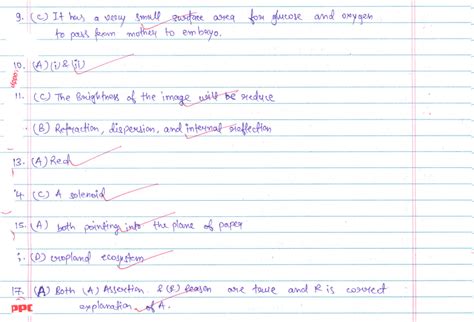 9. (C) It has a very small surface area for glucose and oxygen
to pass from mother to embryo.
10. (A) (i) & (ii)
11. (C) The Brightness of the image will be reduce
(B) Refraction, dispersion, and internal reflection
13. (A) Red
4 (C) A solenoid
15. (A) both pointing into the plane of paper
(D) cropland ecosystem
17. (A) Both (A) Assertion & (R) Reason are true and R is correct
explanation of A.
PPC